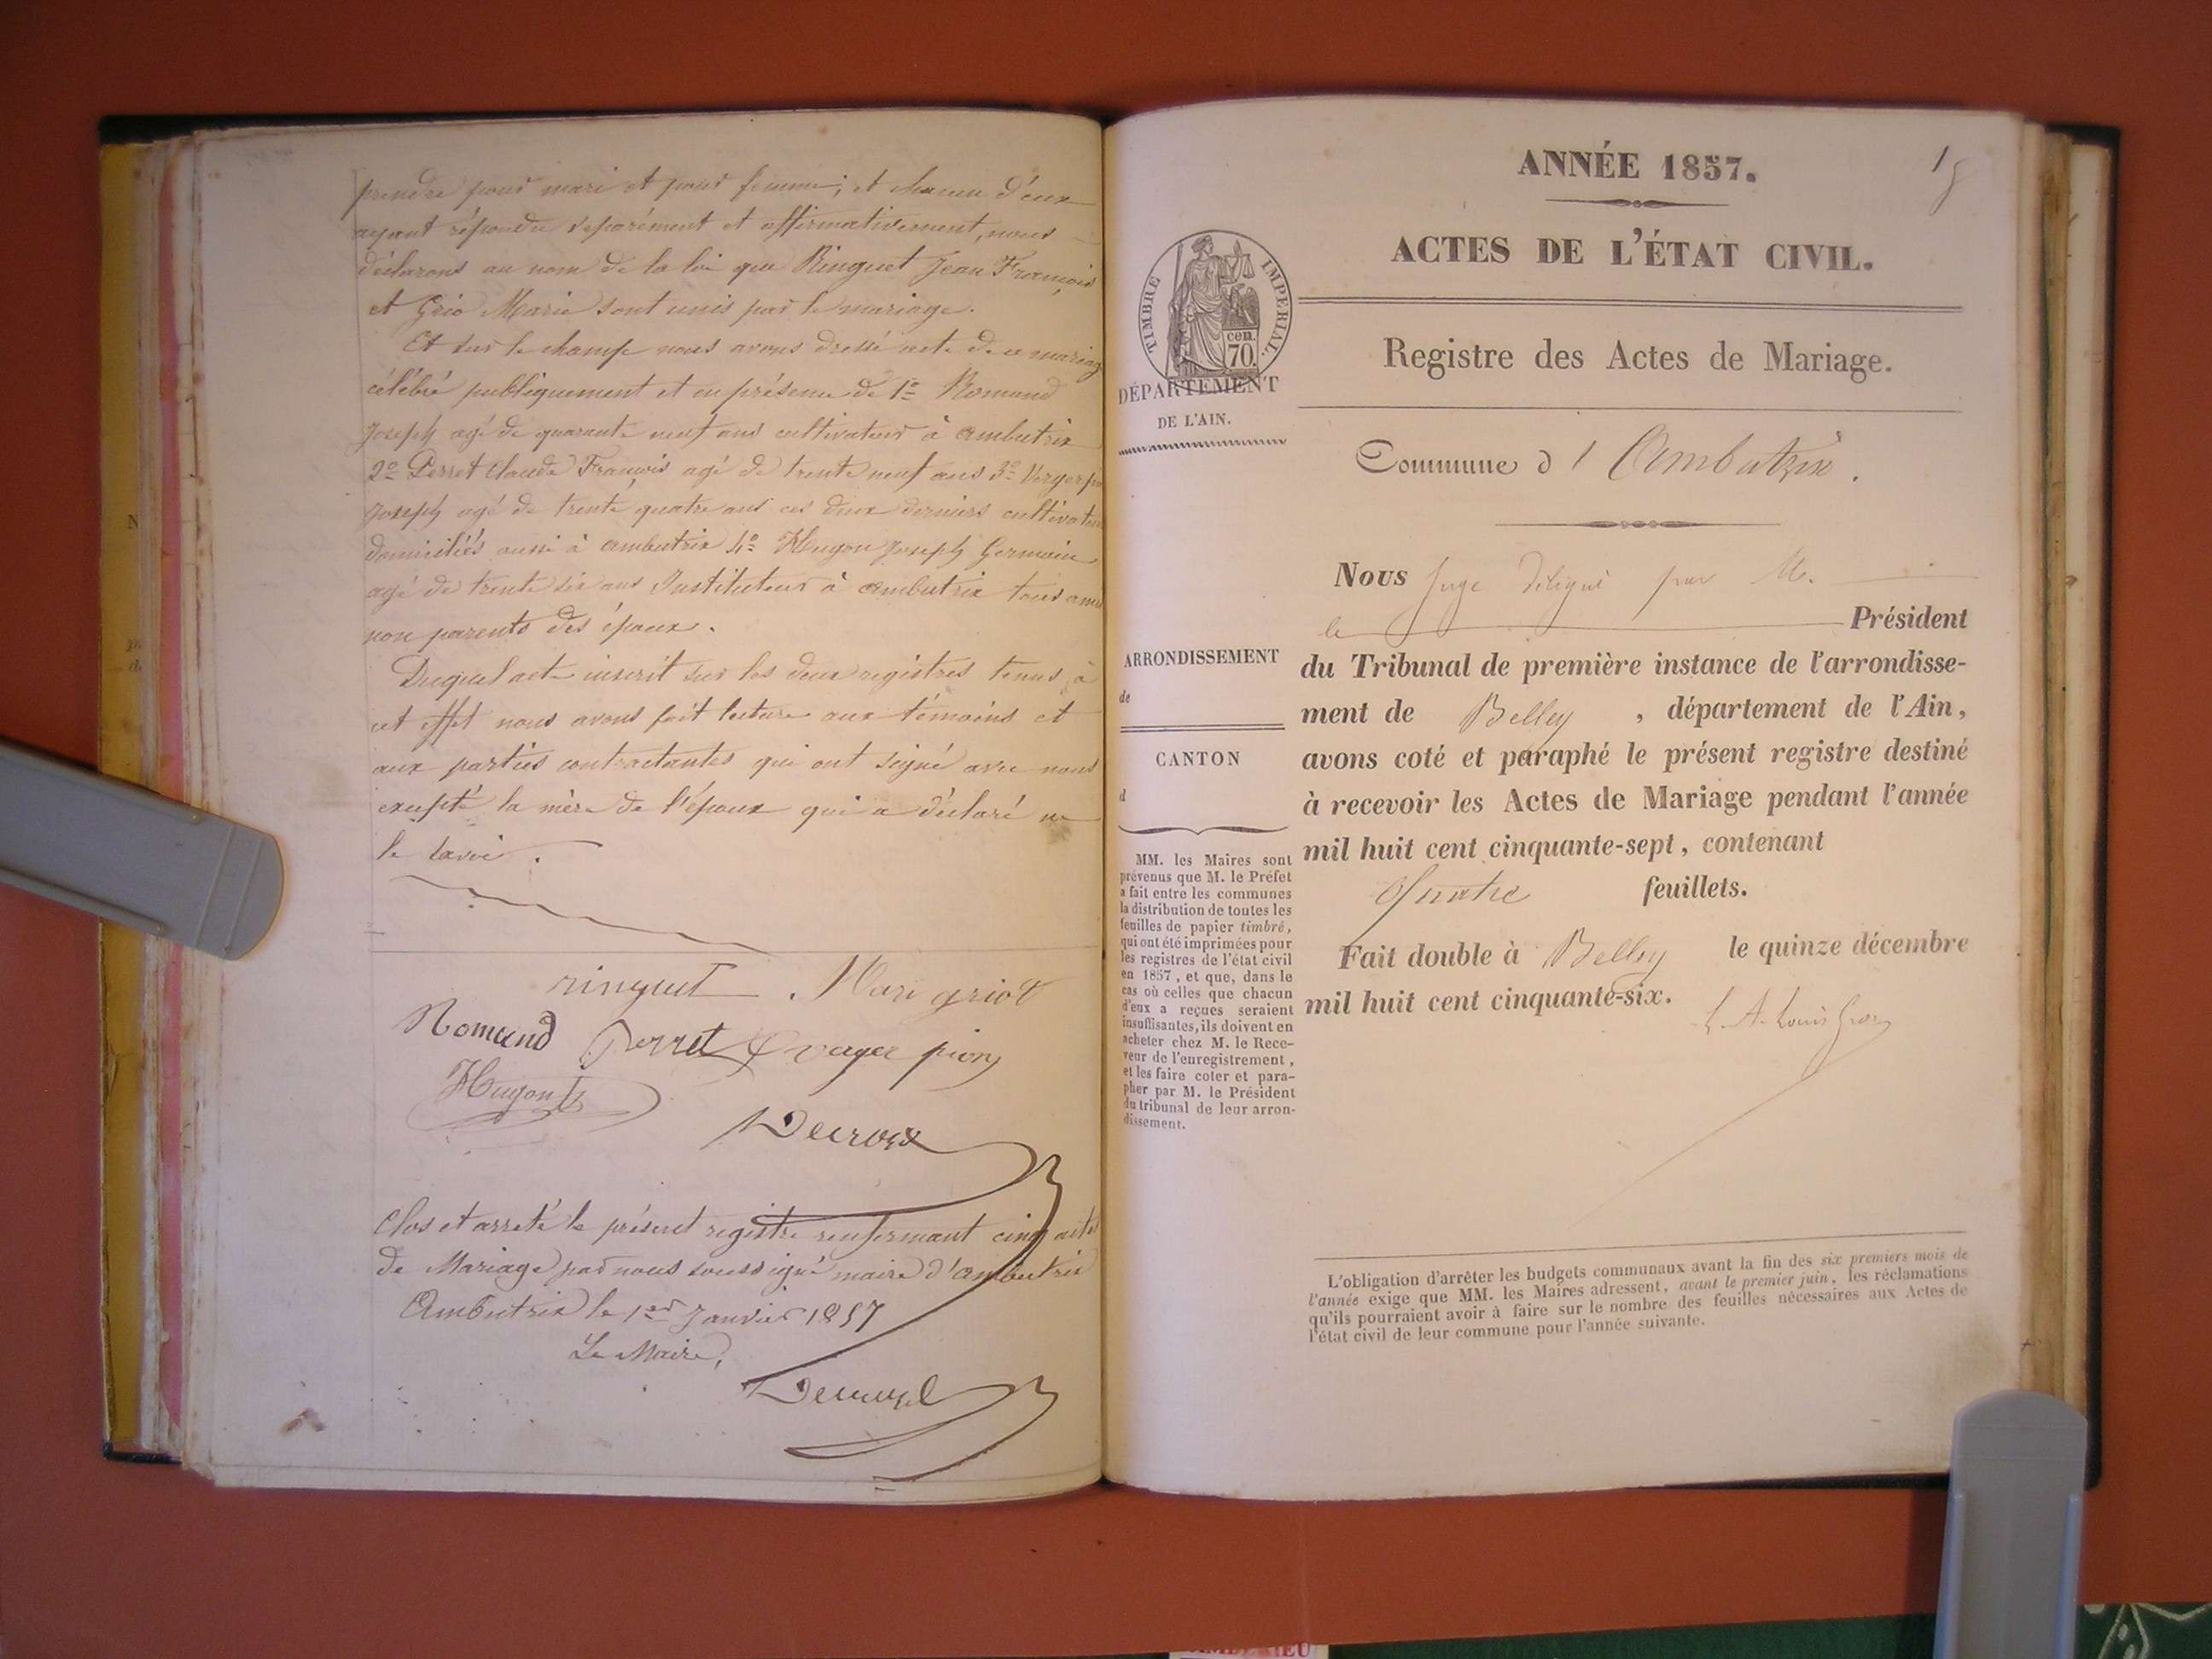 prendre pour mari et pour femme; et chacun d'eux
ayant répondu séparément et affirmativement, nous
déclarons au nom de la loi que Ringuet Jean François
et Grio Marie sont unis par le mariage.
Et sur le champ nous avons dressé acte de ce mariage
célébré publiquement et en présence de 1º Romand
Joseph agé de quarante neuf ans cultivateur à ambutrix
2º Perret Claude François agé de trente neuf ans 3º Verger
Joseph agé de trente quatre ans ces deux derniers cultivateurs
domiciliés aussi à ambutrix 4º Hugon Joseph Germain
agé de trente six ans Instituteur à ambutrix tous amis
non parents des époux.
Duquel acte inscrit sur les deux registres tenus à
cet effet nous avons fait lecture aux témoins et
aux parties contractantes qui ont signé avec nous
excepté la mère de l'époux qui a déclaré ne
le savoir.
ringuet Mari griot
Romand Perret
Hugon
Decroix
Clos et arreté le présent registre renfermant cinq actes
de Mariage par nous soussigné maire d'ambutrix
Ambutrix le 1er Janvier 1857
Le Maire,
ANNÉE 1857.
ACTES DE L'ÉTAT CIVIL.
TIMBRE IMPERIAL.
cen.
70.
DÉPARTEMENT
DE L'AIN.
Registre des Actes de Mariage.
Commune d' Ambutrix.
Nous Juge délégué par M.
le Président
ARRONDISSEMENT
de
CANTON
d
du Tribunal de première instance de l'arrondisse-
ment de Belley , département de l'Ain,
avons coté et paraphé le présent registre destiné
à recevoir les Actes de Mariage pendant l'année
mil huit cent cinquante-sept, contenant
Quatre feuillets.
Fait double à Belley le quinze décembre
mil huit cent cinquante-six.
MM. les Maires sont
prévenus que M. le Préfet
a fait entre les communes
la distribution de toutes les
feuilles de papier timbré,
qui ont été imprimées pour
les registres de l'état civil
en 1857, et que, dans le
cas où celles que chacun
d'eux a reçues seraient
insuffisantes, ils doivent en
acheter chez M. le Rece-
veur de l'enregistrement,
et les faire coter et para-
pher par M. le Président
du tribunal de leur arron-
dissement.
L'obligation d'arrêter les budgets communaux avant la fin des six premiers mois de
l'année exige que MM. les Maires adressent, avant le premier juin, les réclamations
qu'ils pourraient avoir à faire sur le nombre des feuilles nécessaires aux Actes de
l'état civil de leur commune pour l'année suivante.